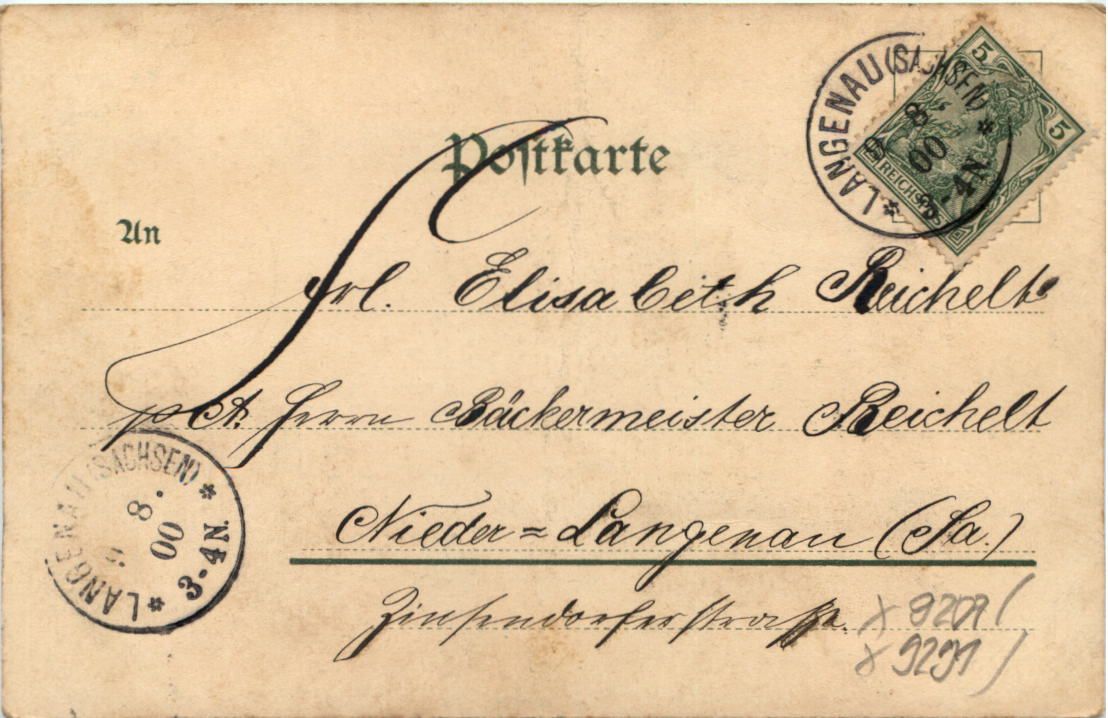 Postkarte
An
Frl. Elisabeth Reichelt
Herrn Bäckermeister Reichelt
Nieder=Langenau (Sa.)
LANGENAU (SACHSEN)
8.
00
3-4N.
5
5
REICHSPOST
LANGENAU (SACHSEN)
8.
00
3-4N.